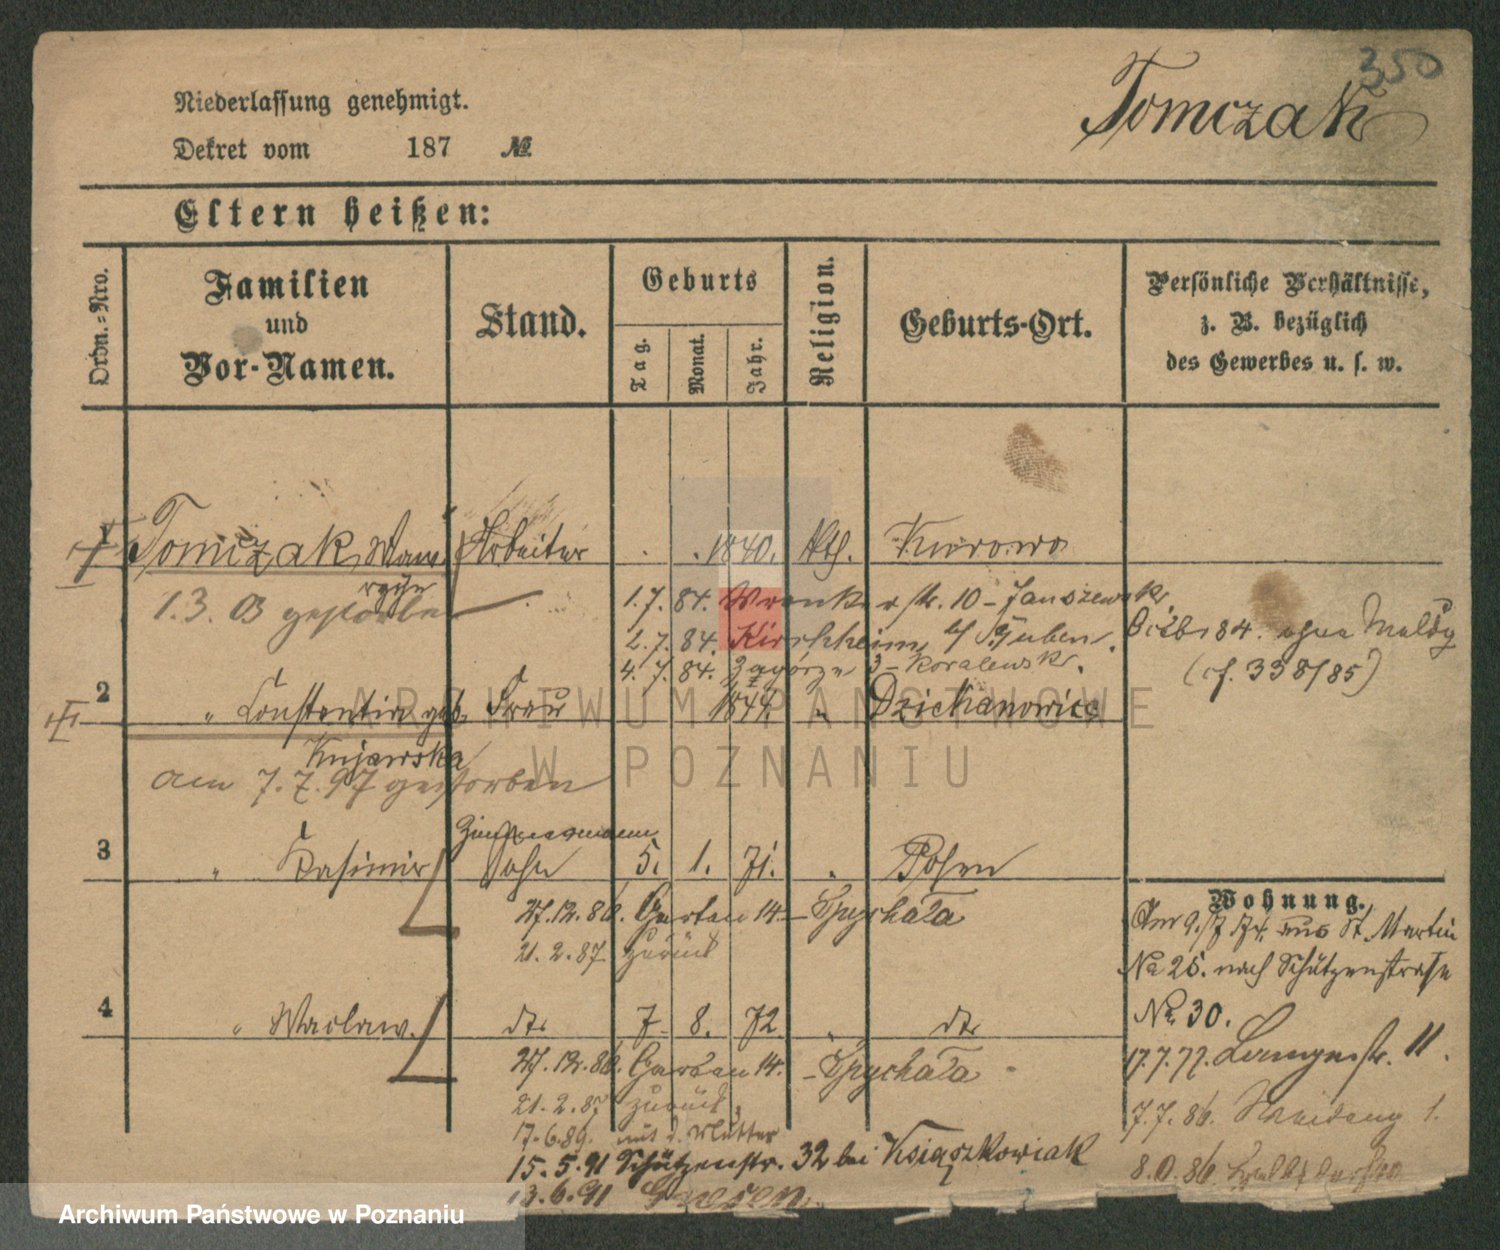 350
Tomczak
Niederlassung genehmigt.
Dekret vom 187 №
Eltern heißen:
Ordn.-Nro.
Familien und Vor-Namen.
Stand.
Geburts
Tag.
Monat.
Jahr.
Religion.
Geburts-Ort.
Persönliche Verhältnisse,
z. B. bezüglich
des Gewerbes u. s. w.
1 Tomczak Waw- Arbeiter . . 1840. Kth. Kurowo
rzyn
1.3. 03 gestorben
1.7. 84. Wronkerstr. 10 – Januszewsk.
2.7. 84. Kirchheim b/ Guben.
84. ohne Meldg
4.7. 84. Zagórze 3 – Koralewsk.
(cf. 338/85)
2 " Constantin geb. Frau 1844. " Dziekanowice
Kujawska
am 7.7.97 gestorben
Zimmermann
3 " Kasimir Sohn 5. 1. 71. " Posen
27.12.86. Garbau 14. – Spychała
21.2.87 zurück
Wohnung.
Am 9./7 74. aus St. Martin
No 25. nach Schützenstraße
No. 30.
4 " Waclaw. dto 7. 8. 72. " dto
17.7.77. Langestr. 11.
27.12.86. Garbau 14. – Spychała
21.2.87 zurück
7.7.86. 1.
17.6.89. mit d. Mutter
15.5.91 Schützenstr. 32 bei Ksiąszkowiak
13.6.91 Gnesen.
ARCHIWUM PAŃSTWOWE
W POZNANIU
Archiwum Państwowe w Poznaniu